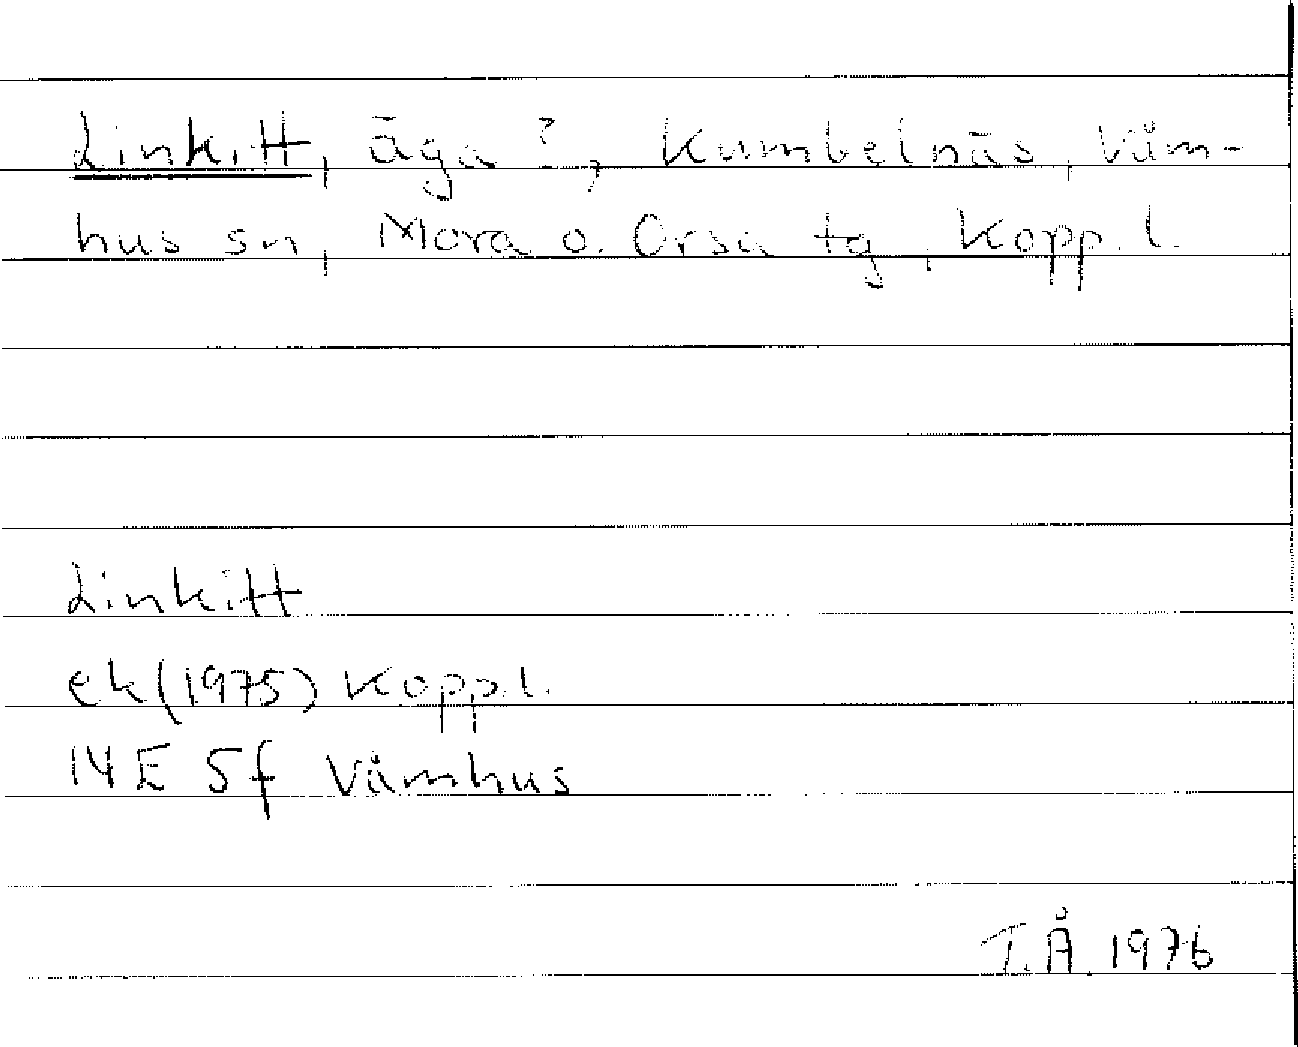 Linkitt, äga?, Kumbelnäs, Våm-
hus sn, Mora o. Orsa tg, Kopp. l.
Linkitt
ek (1975) Kopp. l.
14E 5f Våmhus
T.Å. 1976